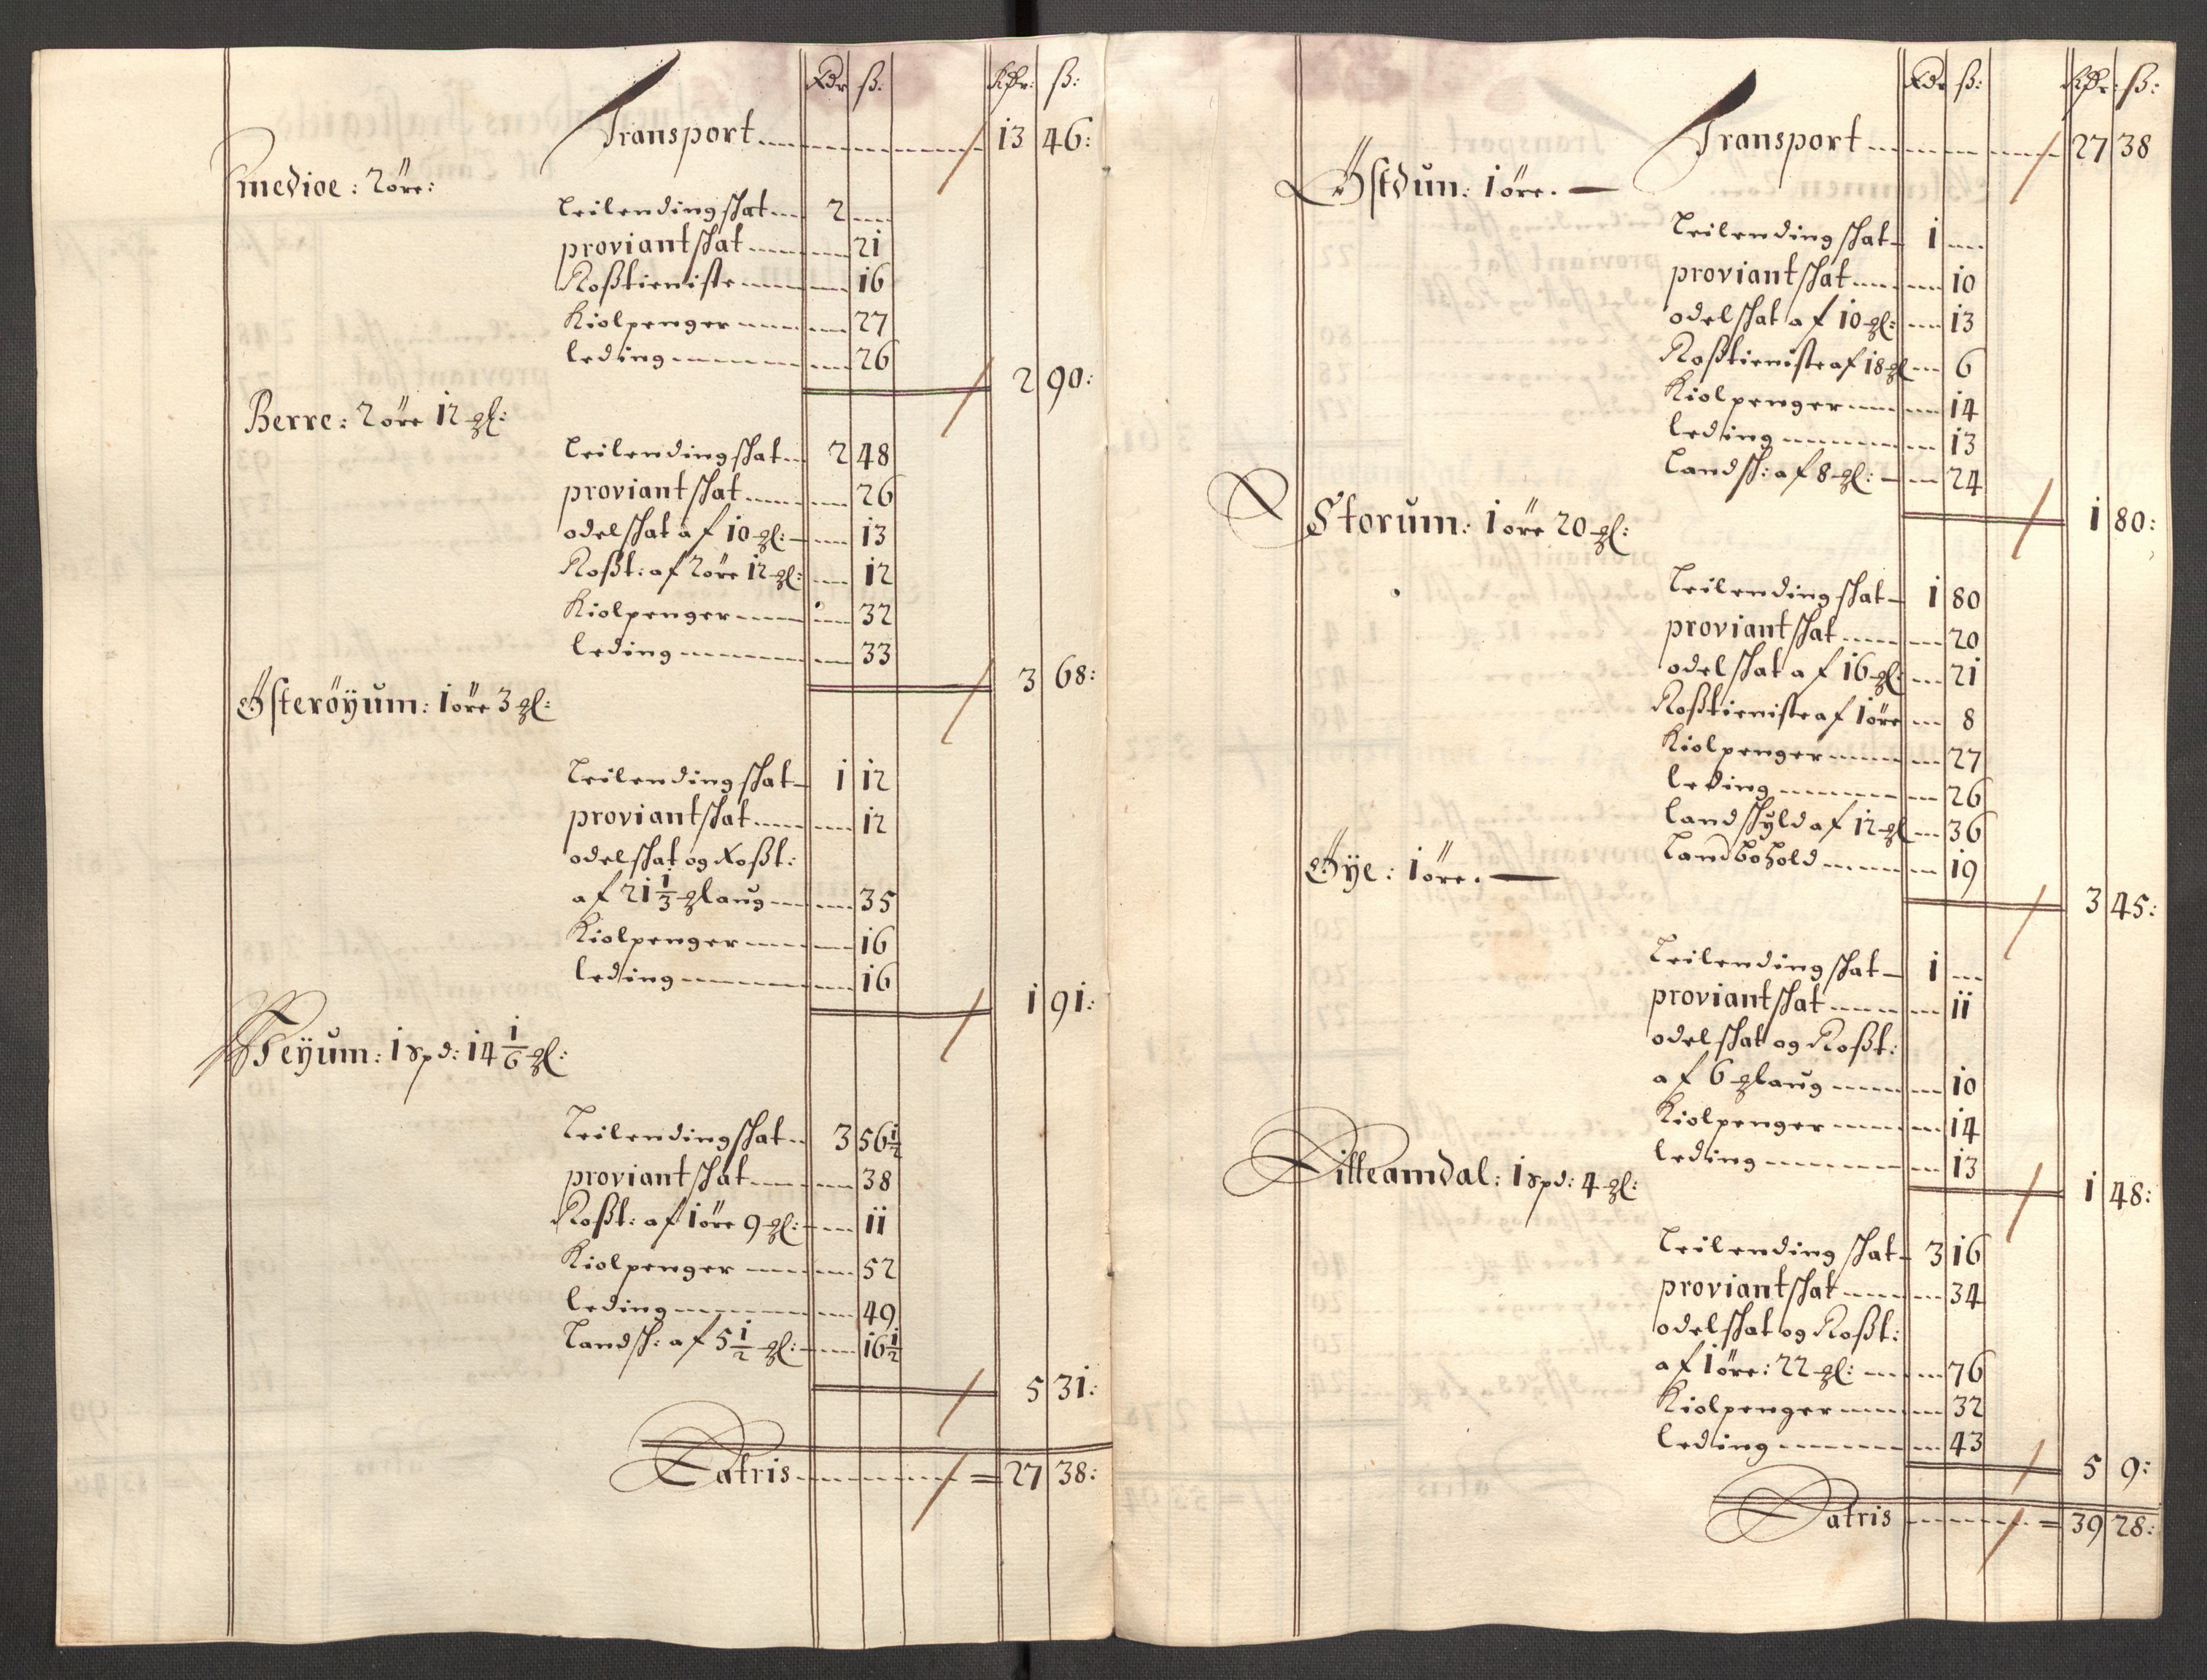 Rdr ß: Rdr: ß:
Transport 13 46:
Smedioe: 2 öre:
Leilendingschat 2
proviantschat 21
Roßtieniste 16
Kiolpenger 27
leding 26
2 90:
Berre: 2 öre 12 gl:
Leilendingschat 2 48
proviantschat 26
odelschat af 10 gl: 13
Roßt: af 2 öre 12 gl: 12
Kiolpenger 32
leding 33
3 68:
Österöyum: 1 öre 3 gl:
Leilendingschat 1 12
proviantschat 12
odelschat og Roßt:
af 21 1/3 glaug 35
Kiolpenger 16
leding 16
1 91:
1 spd: 14 1/6 gl:
Leilendingschat 3 56 1/2
proviantschat 38
Roßt: af 1 öre 9 gl: 11
Kiolpenger 52
leding 49
Landsch: af 5 1/2 gl: 16 1/2
5 31:
Latris = 27 38:
Rdr ß: Rdr: ß:
Transport 27 38
Östdun: 1 öre.
Leilendingschat 1
proviantschat 10
odelschat af 10 gl: 13
Roßtieniste af 18 gl 6
Kiolpenger 14
leding 13
Landsch: af 8 gl: 24
1 80:
Storum: 1 öre 20 gl:
Leilendingschat 1 80
proviantschat 20
odelschat af 16 gl: 21
Roßtieniste af 1 öre 8
Kiolpenger 27
leding 26
landschyld af 12 gl 36
Landbohold 19
3 45:
Öye: 1 öre.
Leilendingschat 1
proviantschat 11
odelschat og Roßt:
af 6 glaug 10
Kiolpenger 14
leding 13
1 48:
Lilleamdal: 1 spd: 4 gl:
Leilendingschat 3 16
proviantschat 34
odelschat og Roßt:
af 1 öre: 22 gl: 76
Kiolpenger 32
leding 43
5 9:
Latris = 39 28: